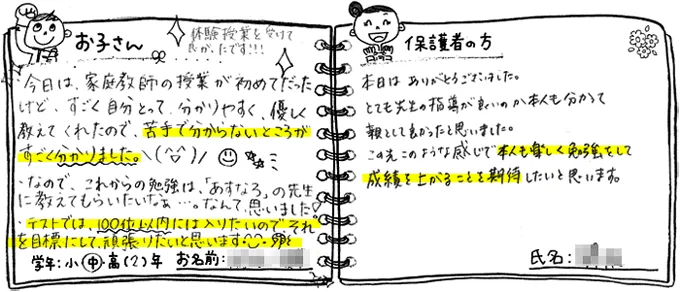 お子さん
体験授業を受けて
良かったです!!!
・今日は、家庭教師の授業が初めてだった
けど、すごく自分とって、分かりやすく、優しく
教えてくれたので、苦手で分からないところが
すごく分かりました。\(^▽^)/
・なので、これからの勉強は、「あすなろ」の先生
に教えてもらいたいなぁ…。なんて、思いました♡
・テストでは、100位以内には入りたいので それ
を目標にして、頑張りたいと思います
学年:小・中・高(2)年 お名前:
保護者の方
本日は ありがとうございました。
とても先生の指導が良いのか本人も分かって
親としても良かったと思いました。
この先このような感じで本人も楽しく勉強をして
成績を上がることを期待したいと思います。
氏名: